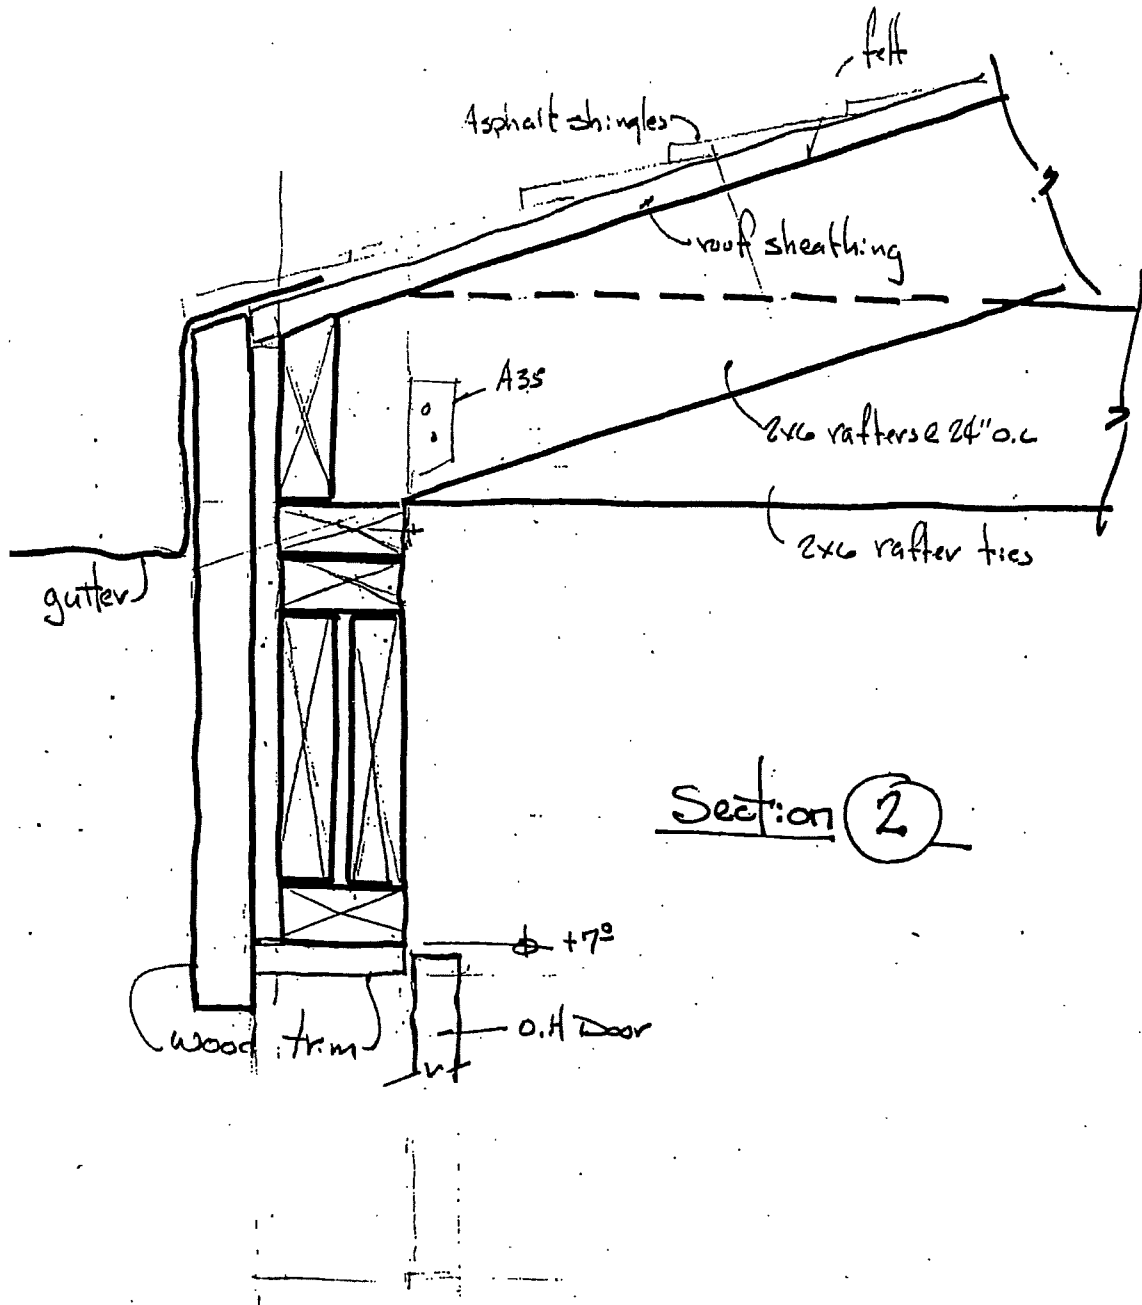 felt
Asphalt shingles
roof sheathing
A35
2x6 rafters @ 24" o.c
2x6 rafter ties
gutter
Section 2
+7⁰
O.H Door
wood trim